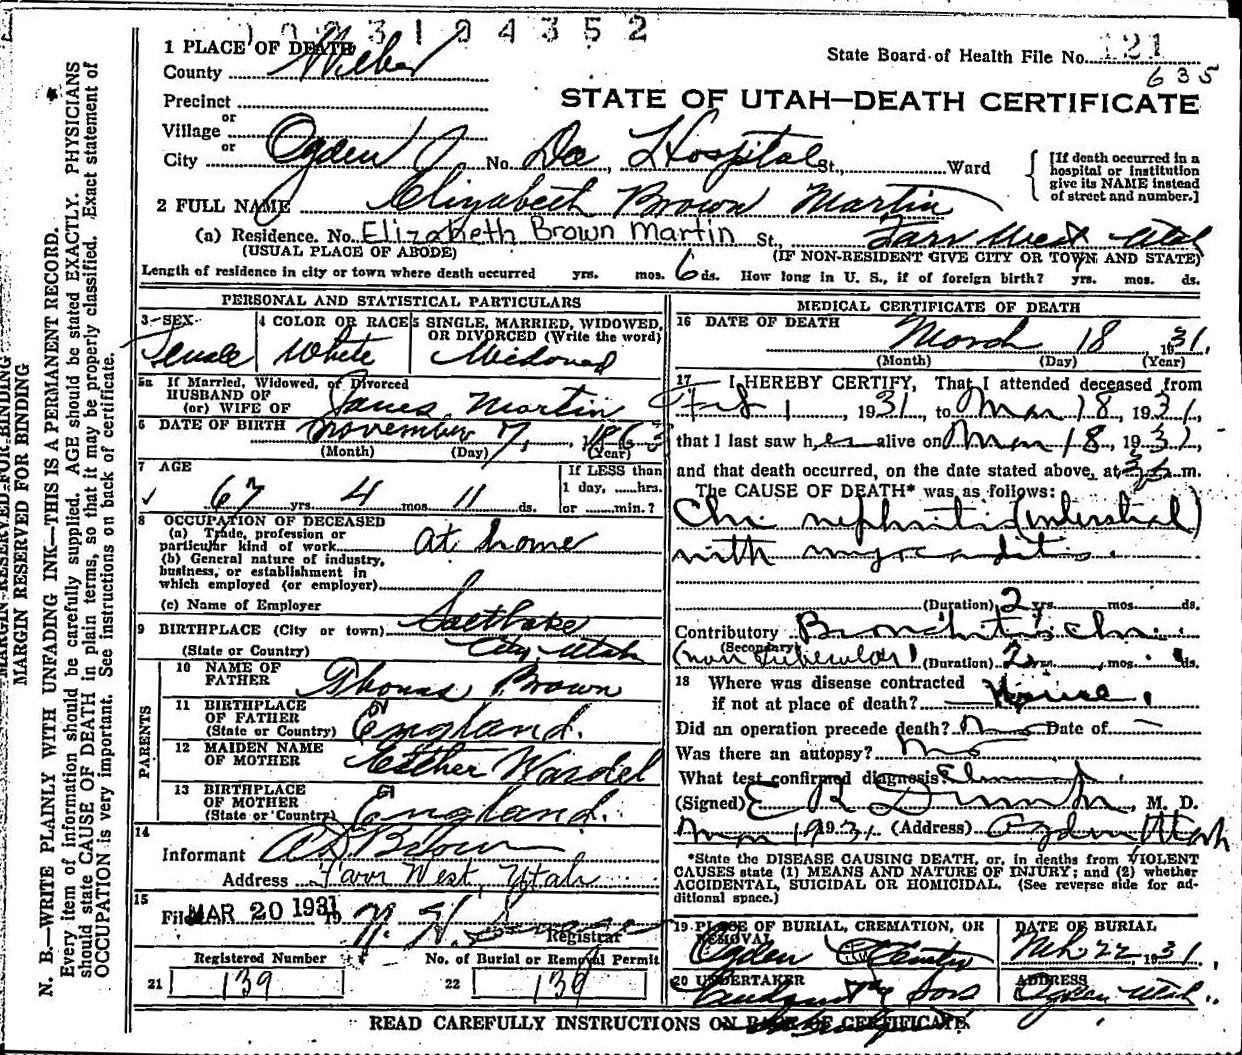 1 PLACE OF DEATH
County Weber
State Board of Health File No. 121
635
Precinct
STATE OF UTAH—DEATH CERTIFICATE
or
Village
or
City Ogden No. Dee Hospital St., Ward
[If death occurred in a hospital or institution give its NAME instead of street and number.]
2 FULL NAME Elizabeth Brown Martin
(a) Residence. No. Elizabeth Brown Martin St., Farr West Utah
(USUAL PLACE OF ABODE) (IF NON-RESIDENT GIVE CITY OR TOWN AND STATE)
Length of residence in city or town where death occurred yrs. mos. 6 ds. How long in U. S., if of foreign birth? yrs. mos. ds.
PERSONAL AND STATISTICAL PARTICULARS
3 SEX Female
4 COLOR OR RACE White
5 SINGLE, MARRIED, WIDOWED, OR DIVORCED (Write the word)
5a If Married, Widowed, or Divorced
HUSBAND OF
(or) WIFE OF James Martin
6 DATE OF BIRTH November 7, 1863
(Month) (Day) (Year)
7 AGE 67 yrs. 4 mos. 11 ds.
If LESS than
1 day, ......hrs.
or ......min.?
8 OCCUPATION OF DECEASED
(a) Trade, profession or
particular kind of work at home
(b) General nature of industry,
business, or establishment in
which employed (or employer)
(c) Name of Employer
9 BIRTHPLACE (City or town) Salt Lake
(State or Country) City, Utah
PARENTS
10 NAME OF FATHER Thomas Brown
11 BIRTHPLACE OF FATHER (State or Country) England.
12 MAIDEN NAME OF MOTHER Esther Wardel
13 BIRTHPLACE OF MOTHER (State or Country) England.
14
Informant Brown
Address Farr West, Utah
15
Filed MAR 20 1931
Registrar
Registered Number No. of Burial or Removal Permit
21 139 22 139
MEDICAL CERTIFICATE OF DEATH
16 DATE OF DEATH
March 18 1931.
(Month) (Day) (Year)
17 I HEREBY CERTIFY, That I attended deceased from
Feb 1, 1931, to Mar 18, 1931,
that I last saw her alive on Mar 18, 1931,
and that death occurred, on the date stated above, at m.
The CAUSE OF DEATH* was as follows:
Chr nephritis (interstitial)
with myocarditis.
(Duration) 2 yrs. mos. ds.
Contributory Bronchitis chr.
(Secondary)
(non tubercular) (Duration) 2 yrs. mos. ds.
18 Where was disease contracted
if not at place of death? Home.
Did an operation precede death? No Date of —
Was there an autopsy? no
What test confirmed diagnosis?
(Signed) E R Dumke, M. D.
Mar 19 1931. (Address) Ogden Utah
*State the DISEASE CAUSING DEATH, or, in deaths from VIOLENT
CAUSES state (1) MEANS AND NATURE OF INJURY; and (2) whether
ACCIDENTAL, SUICIDAL OR HOMICIDAL. (See reverse side for ad-
ditional space.)
19 PLACE OF BURIAL, CREMATION, OR REMOVAL
Ogden
DATE OF BURIAL
Mch. 22, 1931.
20 UNDERTAKER
& Sons
ADDRESS
Ogden Utah.
READ CAREFULLY INSTRUCTIONS ON BACK OF CERTIFICATE.
MARGIN RESERVED FOR BINDING
MARGIN RESERVED FOR BINDING
N. B.—WRITE PLAINLY WITH UNFADING INK—THIS IS A PERMANENT RECORD.
Every item of information should be carefully supplied. AGE should be stated EXACTLY. PHYSICIANS
should state CAUSE OF DEATH in plain terms, so that it may be properly classified. Exact statement of
OCCUPATION is very important. See instructions on back of certificate.